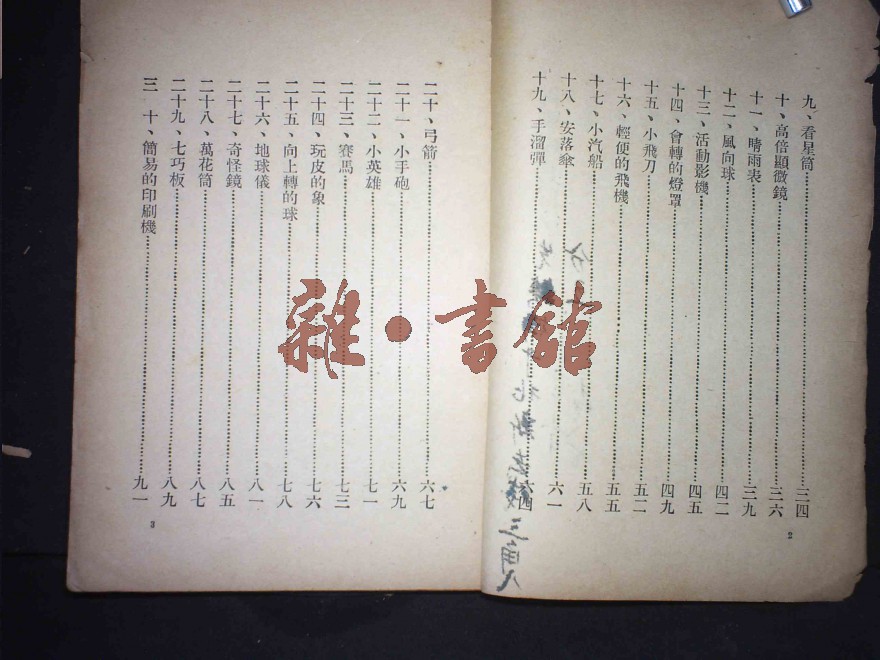 九、看星筒……三四
十、高倍顯微鏡……三六
十一、晴雨表……三九
十二、風向球……四二
十三、活動影機……四五
十四、會轉的燈罩……四九
十五、小飛刀……五二
十六、輕便的飛機……五五
十七、小汽船……五八
十八、安落傘……六一
十九、手溜彈……六四
三角八
2
二十、弓箭……六七
二十一、小手砲……六九
二十二、小英雄……七一
二十三、賽馬……七三
二十四、玩皮的象……七六
二十五、向上轉的球……七八
二十六、地球儀……八一
二十七、奇怪鏡……八五
二十八、萬花筒……八七
二十九、七巧板……八九
三 十、簡易的印刷機……九一
3
雜·書館